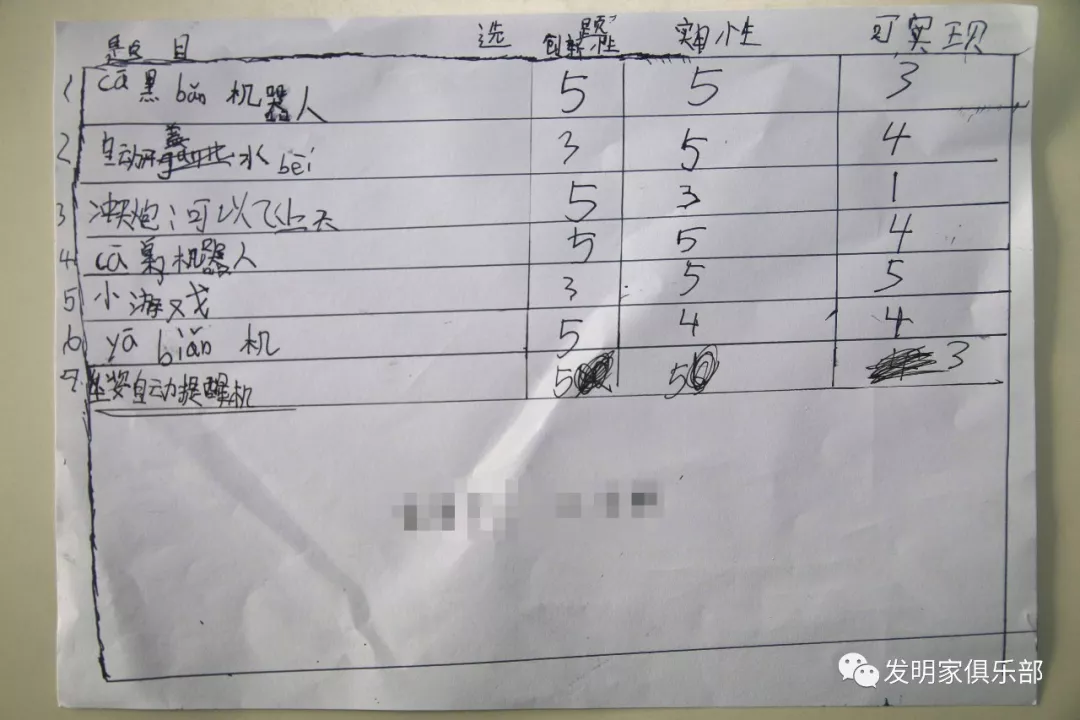 题目 选题 创新性 实用性 可实现
1 cā黑bǎn机器人 5 5 3
2 自动开盖水bēi 3 5 4
3 冲天炮:可以飞上天 5 3 1
4 cā 机器人 5 5 4
5 小游戏 3 5 5
6 yā biǎn 机 5 4 4
7 坐姿自动提醒机 5 5 3
发明家俱乐部